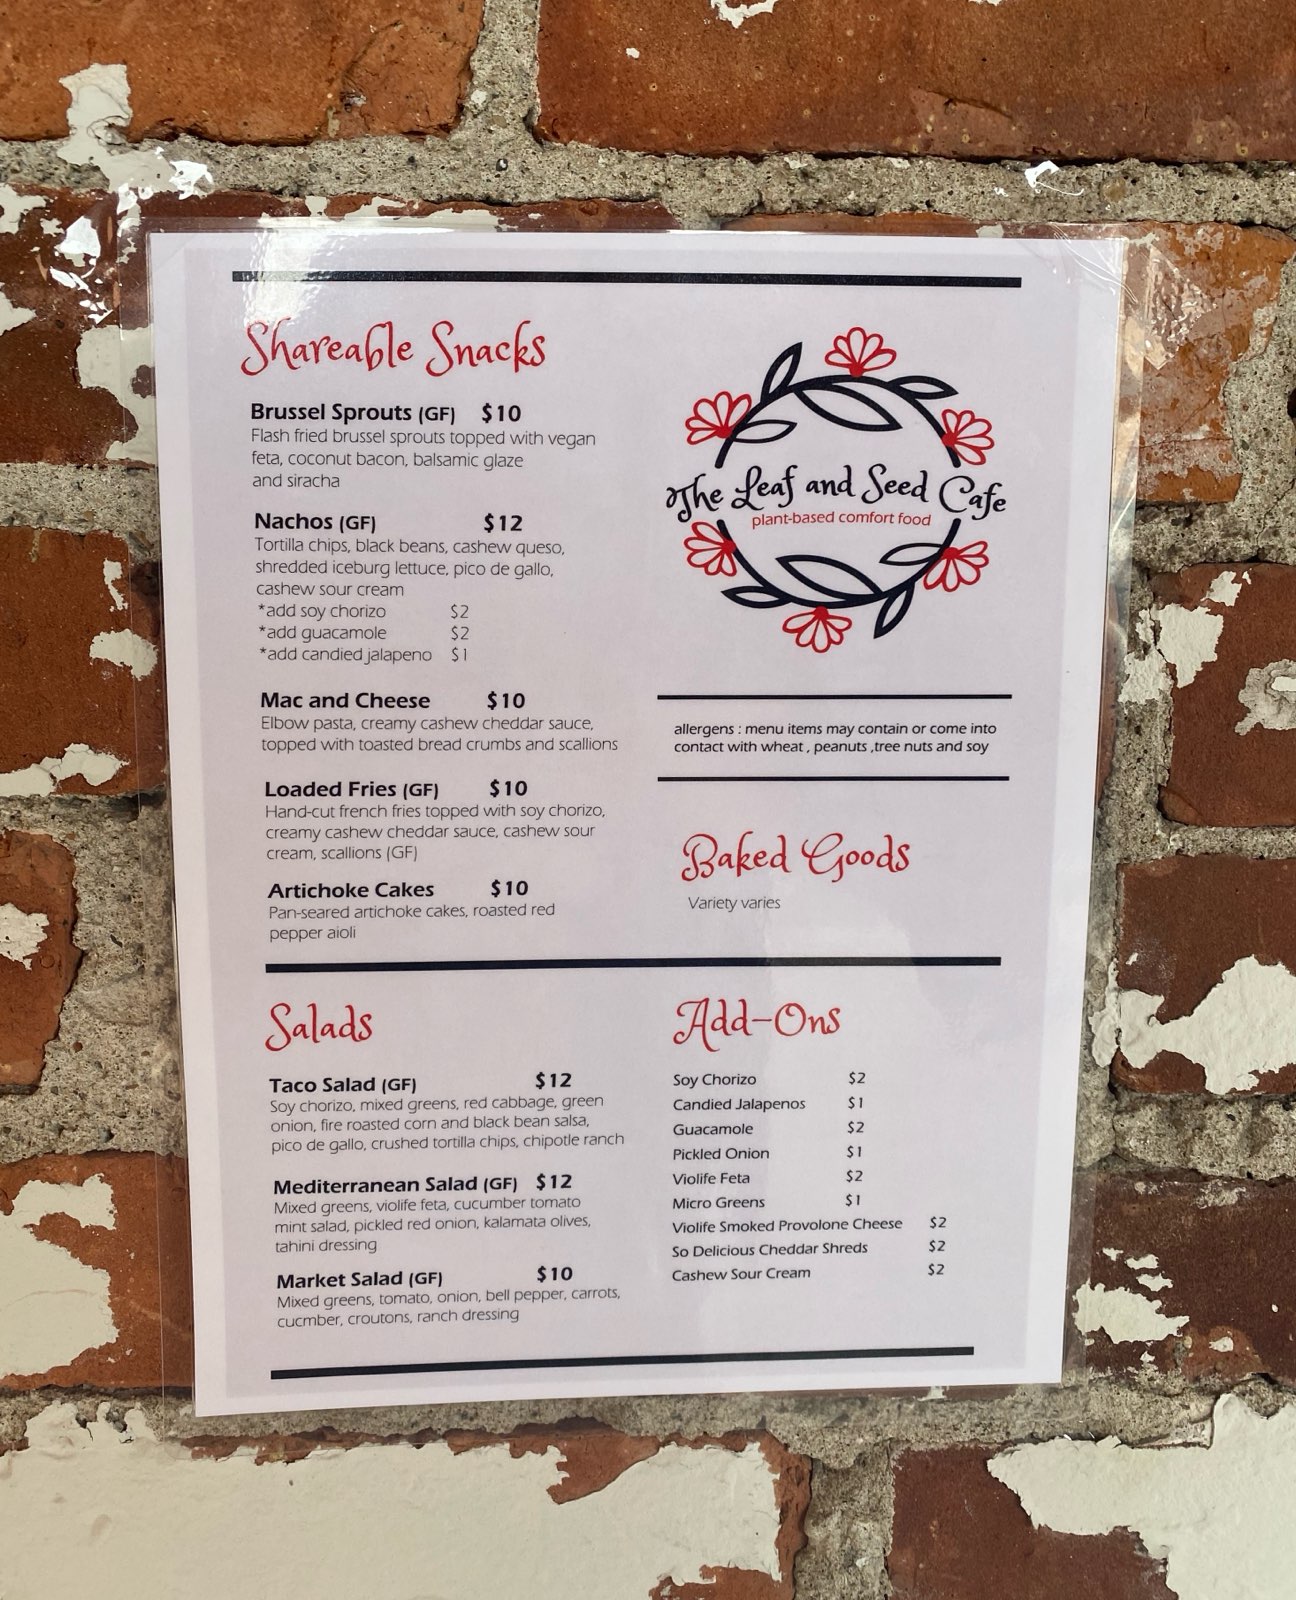 Shareable Snacks
Brussel Sprouts (GF) $10
Flash fried brussel sprouts topped with vegan
feta, coconut bacon, balsamic glaze
and siracha
Nachos (GF) $12
Tortilla chips, black beans, cashew queso,
shredded iceburg lettuce, pico de gallo,
cashew sour cream
*add soy chorizo $2
*add guacamole $2
*add candied jalapeno $1
Mac and Cheese $10
Elbow pasta, creamy cashew cheddar sauce,
topped with toasted bread crumbs and scallions
Loaded Fries (GF) $10
Hand-cut french fries topped with soy chorizo,
creamy cashew cheddar sauce, cashew sour
cream, scallions (GF)
Artichoke Cakes $10
Pan-seared artichoke cakes, roasted red
pepper aioli
The Leaf and Seed Cafe
plant-based comfort food
allergens : menu items may contain or come into
contact with wheat , peanuts ,tree nuts and soy
Baked Goods
Variety varies
Salads
Taco Salad (GF) $12
Soy chorizo, mixed greens, red cabbage, green
onion, fire roasted corn and black bean salsa,
pico de gallo, crushed tortilla chips, chipotle ranch
Mediterranean Salad (GF) $12
Mixed greens, violife feta, cucumber tomato
mint salad, pickled red onion, kalamata olives,
tahini dressing
Market Salad (GF) $10
Mixed greens, tomato, onion, bell pepper, carrots,
cucmber, croutons, ranch dressing
Add-Ons
Soy Chorizo $2
Candied Jalapenos $1
Guacamole $2
Pickled Onion $1
Violife Feta $2
Micro Greens $1
Violife Smoked Provolone Cheese $2
So Delicious Cheddar Shreds $2
Cashew Sour Cream $2